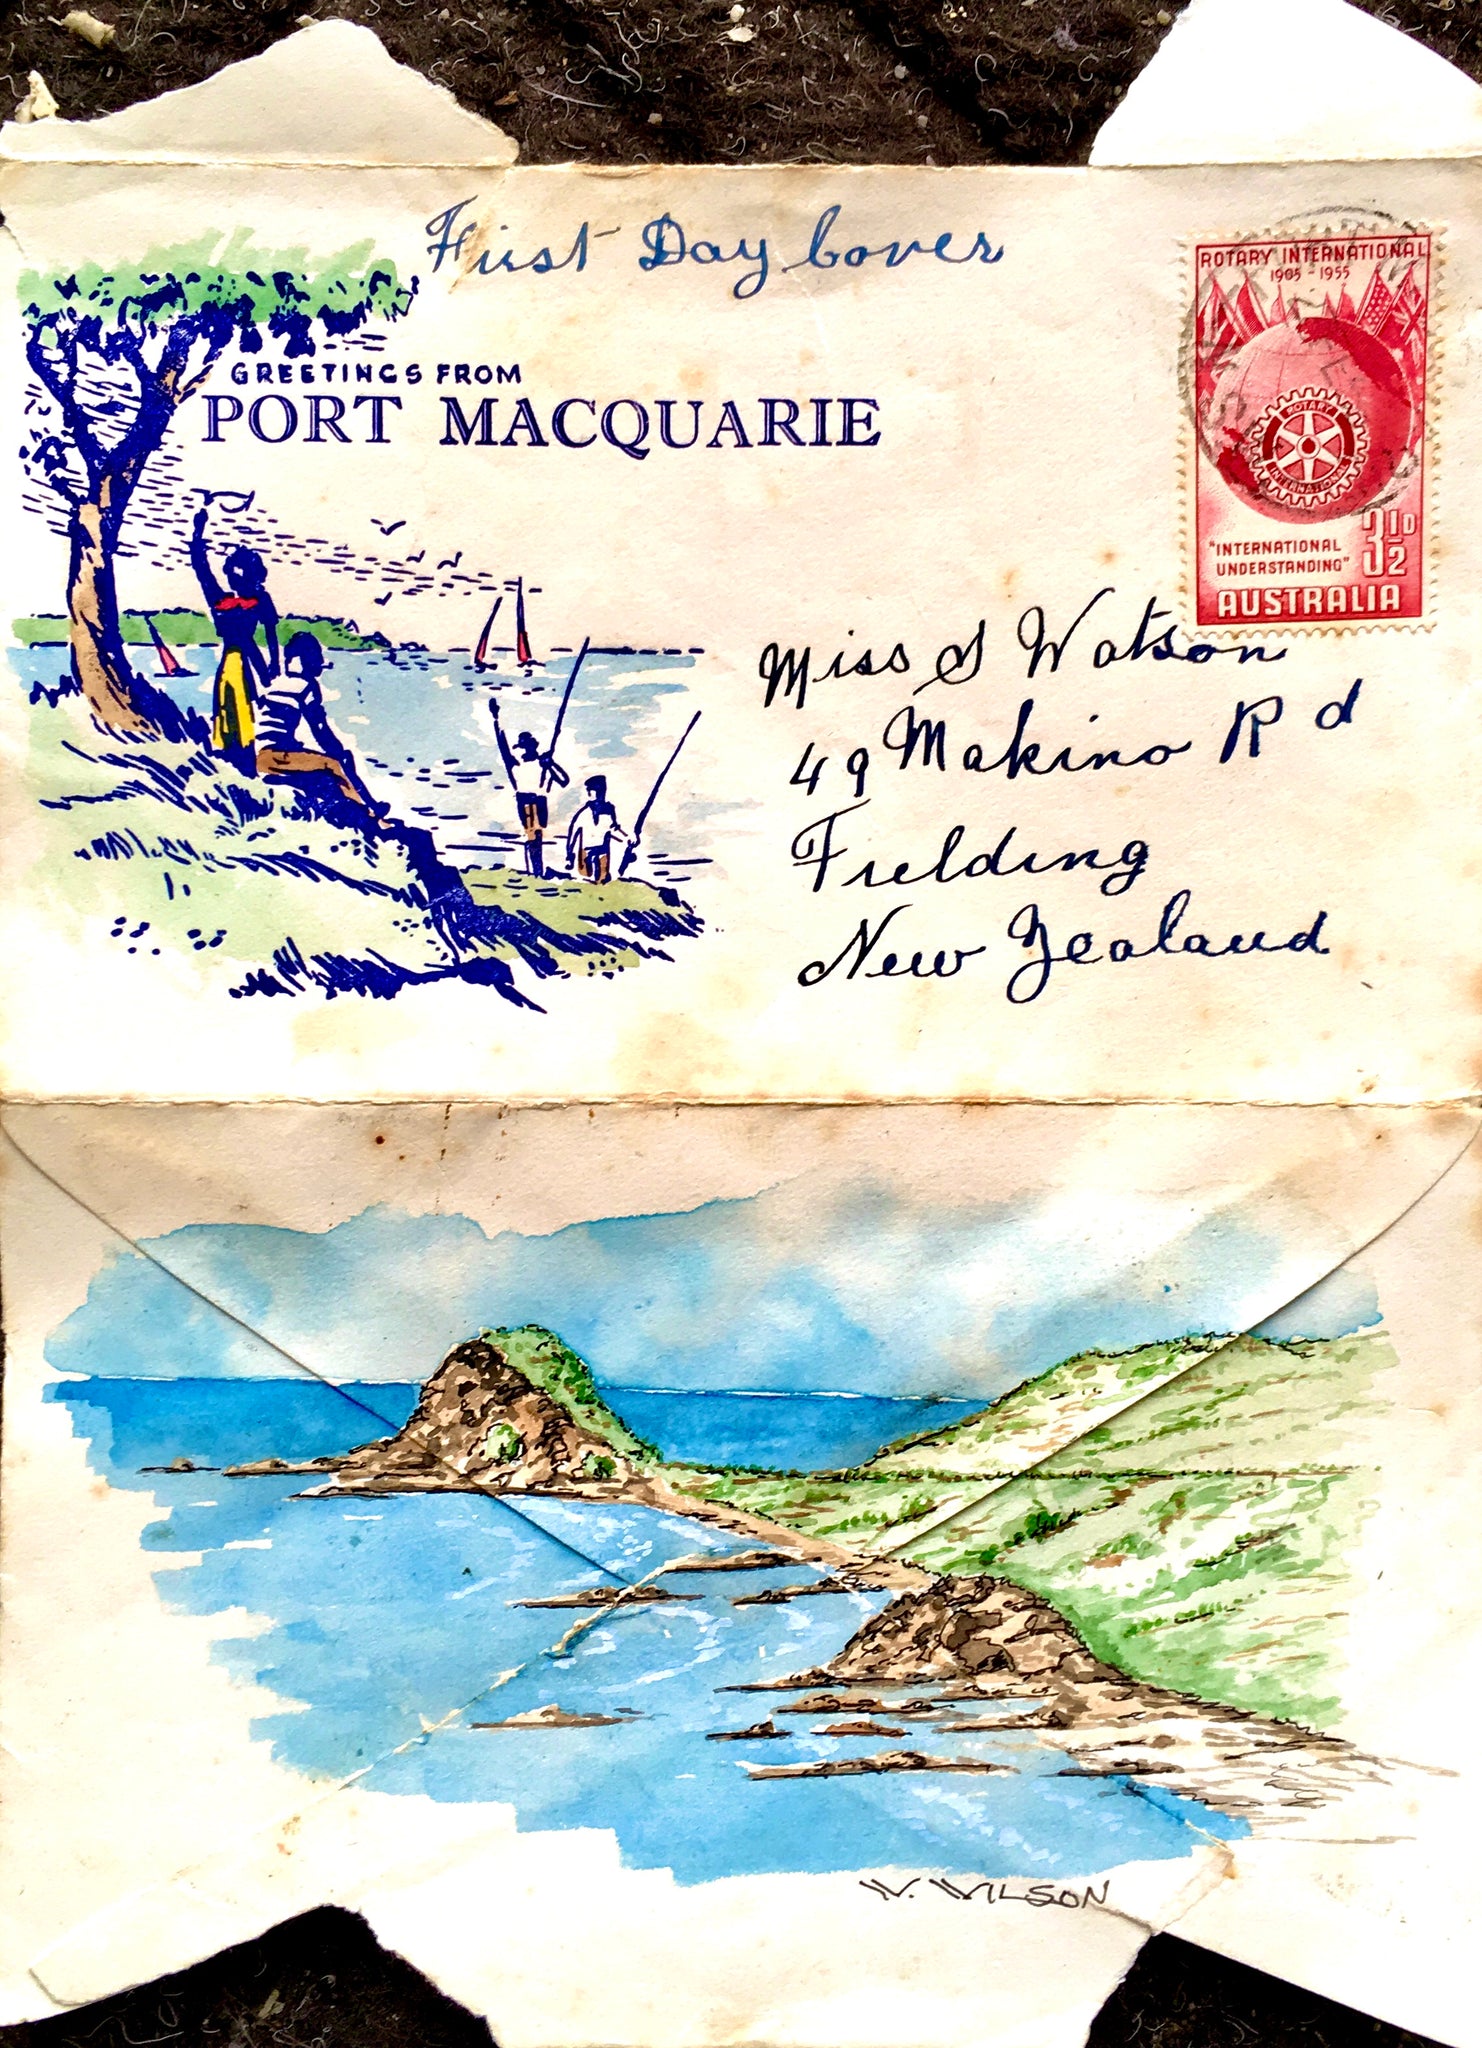 First Day Cover
ROTARY INTERNATIONAL
1905 - 1955
GREETINGS FROM
PORT MACQUARIE
ROTARY
INTERNATIONAL
"INTERNATIONAL
UNDERSTANDING"
3½D
AUSTRALIA
Miss S Watson
49 Makino Rd
Fielding
New Zealand
W. WILSON